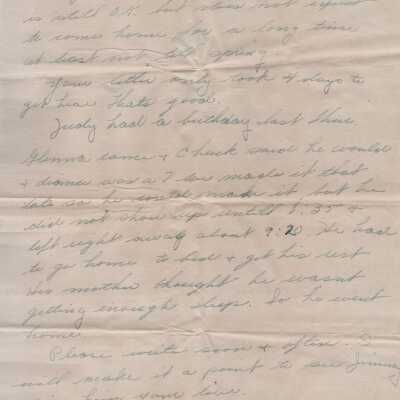 is still O.K. but does not expect
to come home for a long time
at best not till spring.
Your letter only took 4 days to
get hear thats good.
Judy had a birthday last thur.
Glenna came & Chuck said he would
& dance was a 7 we made it that
late so he could make it but he
did not show up untill 8:35 &
left right away about 9:20. He had
to go home to bed & get his rest
his mother thought he wasnt
getting enough sleep. So he went
home.
Please write soon & often. I
will make it a point to see Jimmy
him your love.